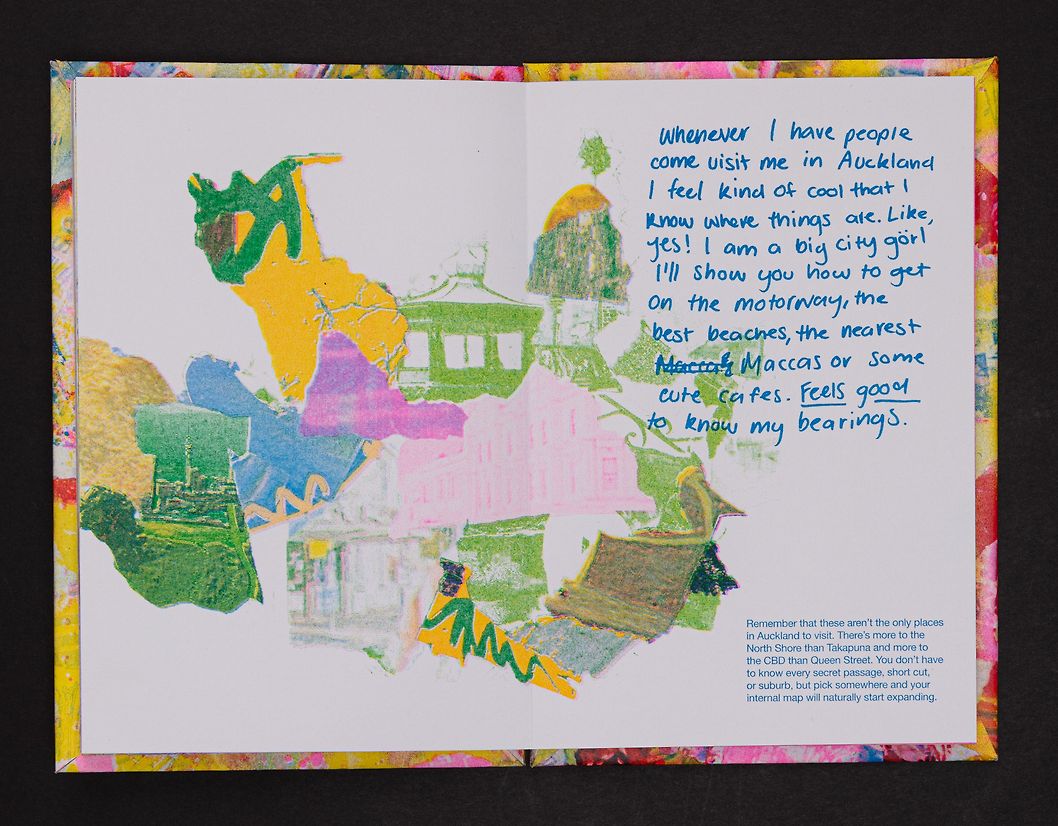 Whenever I have people
come visit me in Auckland
I feel kind of cool that I
know where things are. Like,
yes! I am a big city görl
I'll show you how to get
on the motorway, the
best beaches, the nearest
Maccas Maccas or some
cute cafes. Feels good
to know my bearings.
Remember that these aren't the only places
in Auckland to visit. There's more to the
North Shore than Takapuna and more to
the CBD than Queen Street. You don't have
to know every secret passage, short cut,
or suburb, but pick somewhere and your
internal map will naturally start expanding.